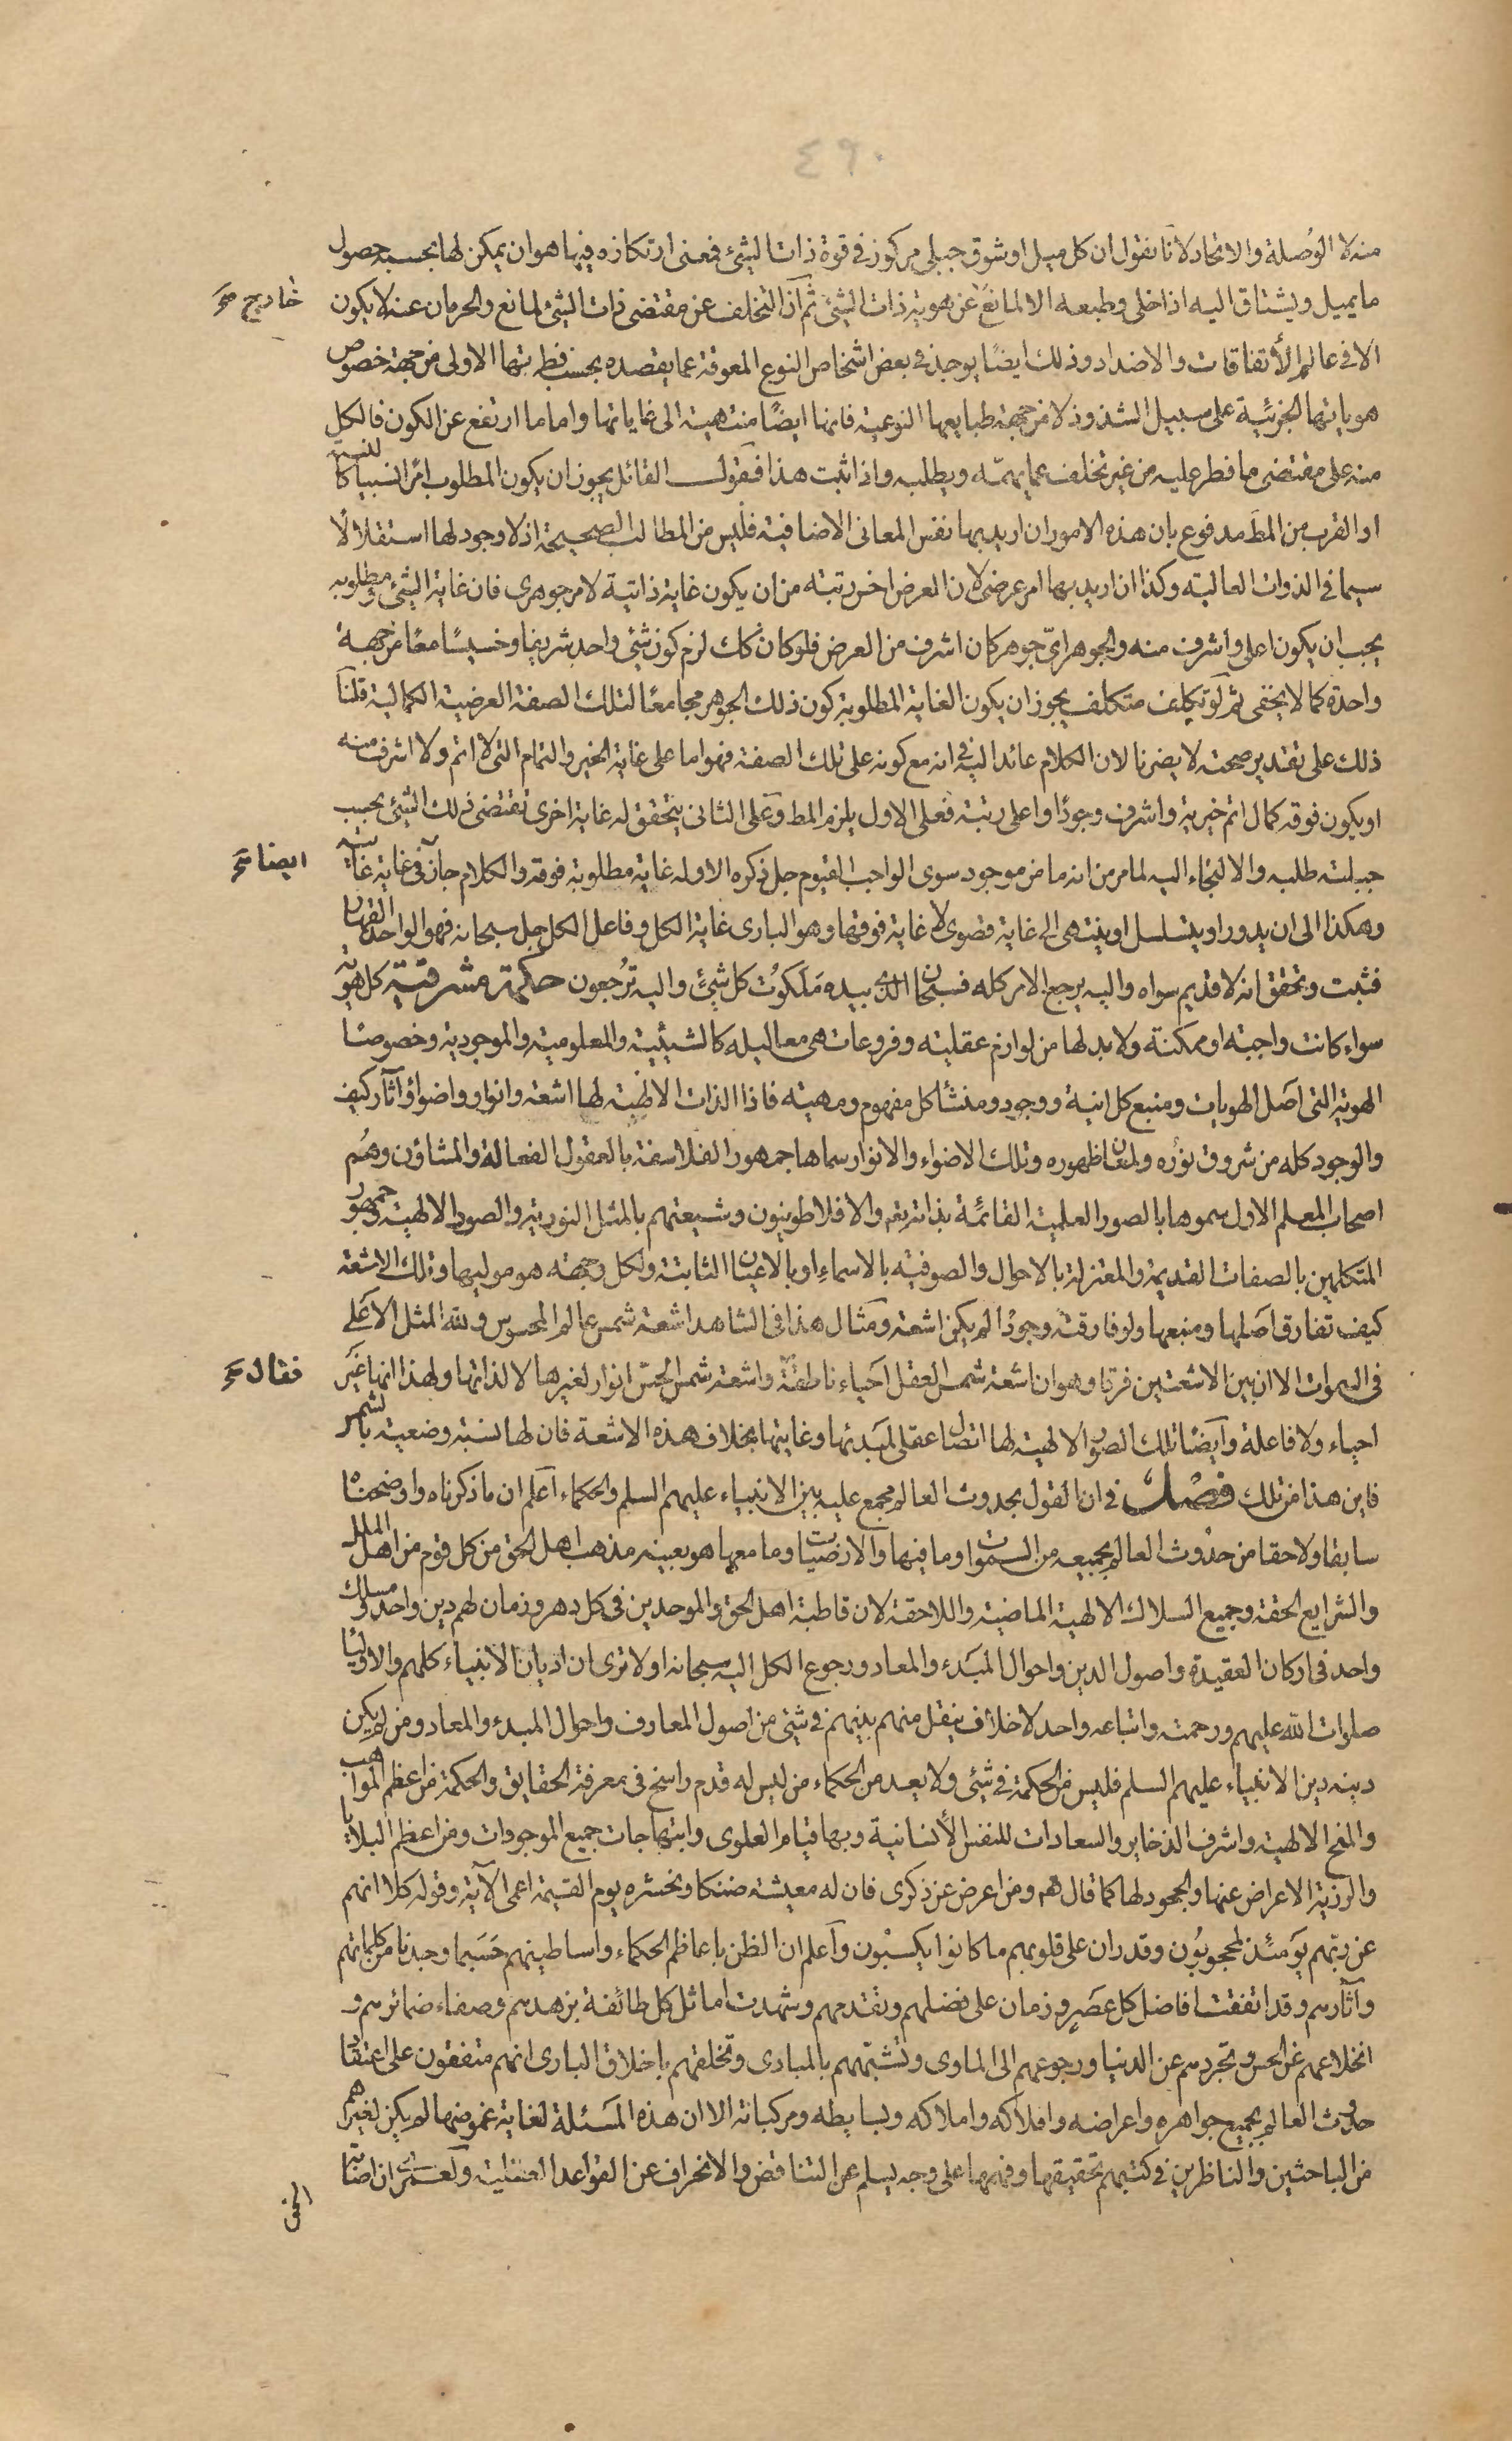 ٤٩٠
منه لا الوُصلة والاتحاد لانا نقول ان كل ميل او شوق جبلى مركوز فى قوة ذات الشئ فمعنى ارتكازه فيها هو ان يمكن لها بحسبه حصول
ما يميل ويشتاق اليه اذا خلى وطبعه الا لمانع عن هوية ذات الشئ ثم ان التخلف عن مقتضى ذات الشئ لمانع والحرمان عنه لا يكون
خارج صح
الا فى عالم الأتفاقات والاضداد وذلك ايضًا يوجد فى بعض اشخاص النوع المعوقة عما يقصده بحسب فطرتها الاولى من جهة خصوص
هوياتها الجزئية على سبيل الشذوذ لا من جهة طبايعها النوعية فانها ايضًا منتهية الى غاياتها واما ما ارتفع عن الكون فالكل
منه على مقتضى ما فطر عليه من غير تخلف عما يهمّه ويطلبه واذا ثبت هذا فنقول القائل يجوز ان يكون المطلوب امرا نسبيا كالنسبة
او القرب من المط مدفوع بان هذه الامور ان اريد بها نفس المعانى الاضافية فليس من المطالب الصحيحة اذ لا وجود لها استقلالا لا
سيما فى الذوات العالية وكذا ان اريد بها امر عرضى لان العرض اخس رتبة من ان يكون غاية ذاتية لامر جوهرى فان غاية الشئ ومطلوبه
يجب ان يكون اعلى واشرف منه والجوهر اىّ جوهر كان اشرف من العرض فلو كان كك لزم كون شئ واحد شريفا وخسيسًا معًا من جهة
واحدة كما لا يخفى ثم لو تكلف متكلف يجوز ان يكون الغاية المطلوبة كون ذلك الجوهر مجامعًا لتلك الصفة العرضية الكمالية قلنا
ذلك على تقدير صحته لا يضرنا لان الكلام عائد اليه فى انه مع كونه على تلك الصفة فهو اما على غاية الخير والتمام التى لا اتم ولا اشرف منه
او يكون فوقه كمال اتم خيرية واشرف وجودًا واعلى رتبة فعلى الاول يلزم المط وعلى الثانى يتحقق له غاية اخرى تقتضى ذلك الشئ بحسب
جبلته طلبه والالتجاء اليه لما مر من انه ما من موجود سوى الواجب القيوم جل ذكره الا وله غاية مطلوبة فوقه والكلام جآر فى غاية غايته
ايضا صح
وهكذا الى ان يدور او يتسلسل او ينتهى الى غاية قصوى لا غاية فوقها وهو البارى غاية الكل وفاعل الكل جل سبحانه فهو الواحد القهار
فثبت وتحقق انه لا قديم سواه واليه يرجع الامر كله فسبحان الذى بيده مَلَكوُت كل شئ واليه تُرجعون حكمة مشرقية كل هوية
سواء كانت واجبة او ممكنة ولا بد لها من لوازم عقلية وفروعات هى معاليله كالشيئية والمعلومية والموجودية وخصوصًا
الهوية التى اصل الهويات ومنبع كل انية ووجود ومنشأ كل مفهوم ومهية فاذا الذات الالهية لها اشعة وانوار واضواؤ وآثار كيف
والوجود كله من شروق نوُره ولمعان ظهوره وتلك الاضواء والانوار سماها جمهور الفلاسفة بالعقول الفعالة والمشاؤن وهُم
اصحاب المعلم الاول سموها بالصور العلمية القائمة بذاته تعم والافلاطونيون وشيعتهم بالمثل النورية والصور الالهية وجمهور
المتكلمين بالصفات القديمة والمعتزلة بالاحوال والصوفية بالاسماءِ او بالاعيان الثابتة ولكل وجهة هو موليها وتلك الاشعة
كيف تفارق اصلها ومنبعها ولو فارقته وجودًا لم يكن اشعة ومثال هذا فى الشاهد اشعة شمس عالم المحسوس ولله المثل الاعلى
فى السموات الا ان بين الاشعتين فرقا وهو ان اشعة شمس العقل احياء ناطقة واشعة شمس الحسّ انوار لغيرها لا لذاتها ولهذا انها غير
فقال صح
احياء ولا فاعلة وايضًا تلك الصور الالهية لها اتصال عقلى لمبدئها وغايتها بخلاف هذه الاشعة فان لها نسبة وضعية بالشمس
فاين هذا من تلك فصل فى ان القول بحدوث العالم مجمع عليه بين الانبياء عليهم السلم والحكماء اعلم ان ما ذكرناه واوضحناه
سابقا ولاحقا من حدوث العالم بجميعه من السموات وما فيها والارضيات وما معها هو بعينه مذهب اهل الحق من كل قوم من اهل الملل
والشرايع الحقة وجميع السلاك الالهية الماضية واللاحقة لان قاطبة اهل الحق والموحدين فى كل دهر وزمان لهم دين واحد ومسلك
واحد فى اركان العقيدة واصول الدين واحوال المبدء والمعاد ورجوع الكل اليه سبحانه اولا ترى ان اديان الانبياء كلهم والاولياء
صلوات الله عليهم ورحمته واتباعه واحد لا خلاف ينقل منهم بينهم فى شئى من اصول المعارف واحوال المبدء والمعاد ومن لم يكن
دينه دين الانبياء عليهم السلم فليس من الحكمة فى شئى ولا يعد من الحكماء من ليس له قدم راسخ فى معرفة الحقايق والحكمة من اعظم المواهب
والمنح الالهية واشرف الذخاير والسعادات للنفس الأنسانية وبها قيام العلوى وابتهاجات جميع الموجودات ومن اعظم البلايا
والرزية الاعراض عنها والجحود لها كما قال تعم ومن اعرض عن ذكرى فان له معيشة ضنكا ونحشره يوم القيمة اعمى الآية وقوله كلا انهم
عن ربّهم يومئذٍ لمحجوبُون وقد ران على قلوبهم ما كانوا يكسبُون واعلم ان الظن باعاظم الحكماء واساطينهم حَسَبما وجدنا من كلماتهم
وآثارهم وقد اتفقت افاضل كل عصَرٍ وزمان على فضلهم وتقدمهم وشهدت اماثل كل طائفة بزهدهم وصفاء ضمائرهم و
انخلاعهم عن الحس وتجردهم عن الدنيا ورجوعهم الى الماوى وتشبّههم بالمبادى وتخلقهم باخلاق البارى انهم متفقون على اعتقاد
حدوث العالم بجميع جواهره واعراضه وافلاكه واملاكه وبسايطه ومركباته الا ان هذه المَسئلة لغاية غموضها لم يكن لغيرهم
من الباحثين والناظرين فى كتبهم تحقيقها وفهمها على وجه يسلم عن التناقض والانحراف عن القواعد العقلية ولعمرى ان اصابة
الحق